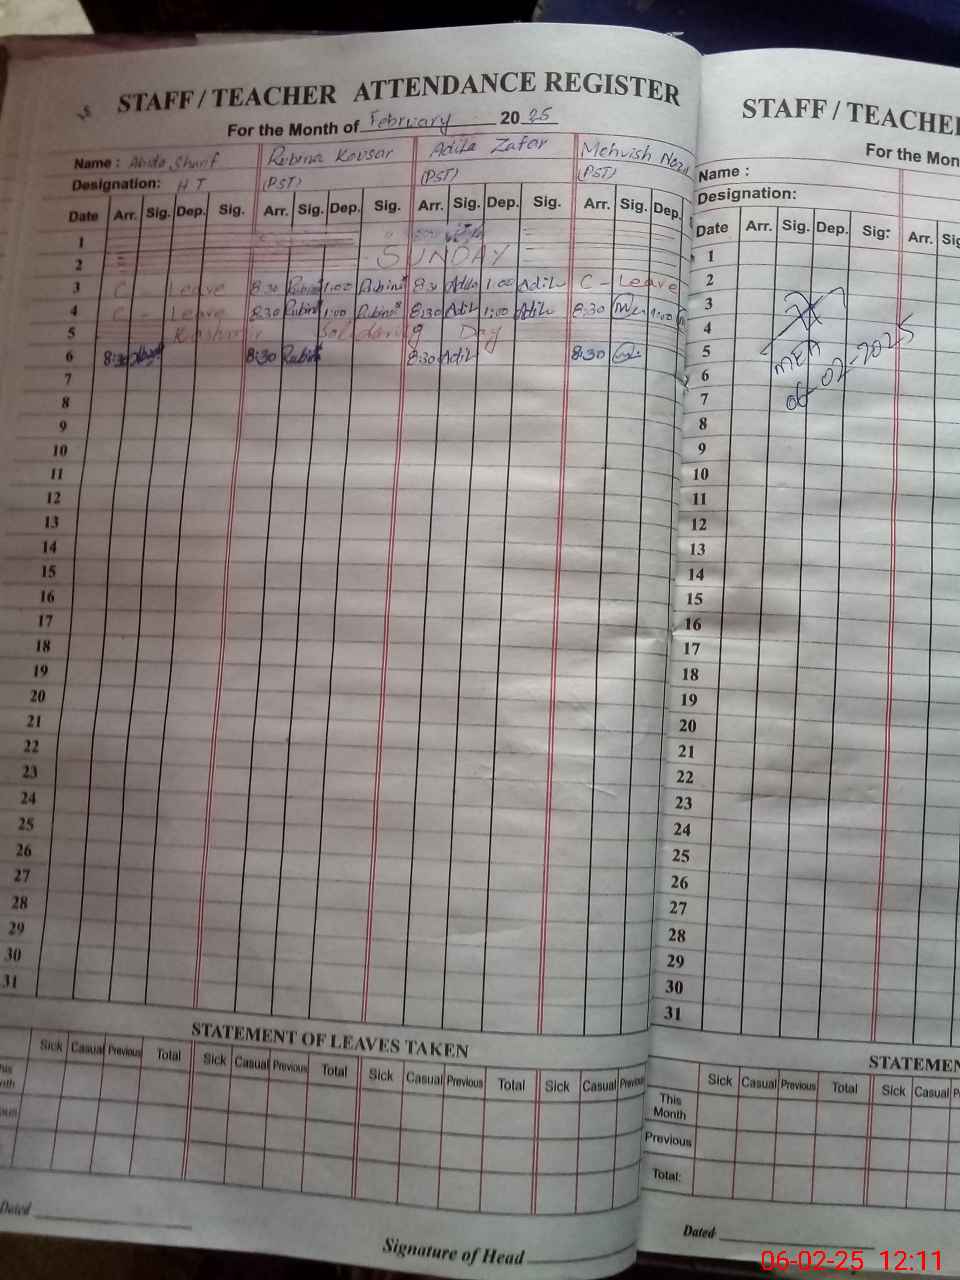 STAFF / TEACHER ATTENDANCE REGISTER
For the Month of February 2025
Name : Abida Sharif Rubina Kousar Adila Zafar Mehvish
Designation: H T (PST) (PST) (PST)
Date Arr. Sig. Dep. Sig. Arr. Sig. Dep. Sig. Arr. Sig. Dep. Sig. Arr. Sig. Dep.
1
2 SUNDAY
3 C - Leave 8:30 Rubina 1:00 Rubina 8:30 Adila 1:00 Adila C - Leave
4 C - Leave 8:30 Rubina 1:00 Rubina 8:30 Adila 1:00 Adila 8:30 1:00
5 Kashmir Solidarity Day
6 8:30 8:30 Rubina 8:30 Adila 8:30
7
8
9
10
11
12
13
14
15
16
17
18
19
20
21
22
23
24
25
26
27
28
29
30
31
STATEMENT OF LEAVES TAKEN
Sick Casual Previous Total Sick Casual Previous Total Sick Casual Previous Total Sick Casual Previous
Dated
Signature of Head
STAFF / TEACHE
For the Mon
Name :
Designation:
Date Arr. Sig. Dep. Sig: Arr. Sig
1
2
3
4
5
6
7
MEA
06-02-2025
8
9
10
11
12
13
14
15
16
17
18
19
20
21
22
23
24
25
26
27
28
29
30
31
STATEMEN
Sick Casual Previous Total Sick Casual P
This Month
Previous
Total:
Dated
06-02-25 12:11